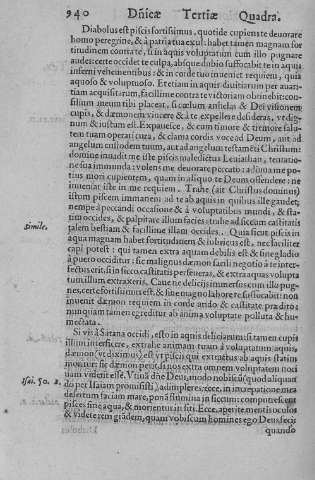 940 Dñicæ Tertiæ Quadra.
Diabolus est piscis fortissimus, quotide cupiens te deuorare
homo peregrine, & à patria tua exul: habet tamen magnam for
titudinem contra te, si in aquis voluptatum cum illo pugnare
audes: certe occidet te culpa, absque dubio suffocabit te in aquis
inferni vehementibus: & in corde tuo inueniet requiem, quia
aquoso & voluptuoso. Etetiam in aquis diuitiarum per auari-
tiam acquisitarum, facillime contra te victoriam obtinebit: con-
silium meum tibi placeat, si cœlum anhelas & Dei visionem
cupis, & dæmonem vincere & à te expellere desideras, vt dig-
num & iustum est. Expauesce, & cum timore & tremore salu-
tem tuam operari ama, & clama cordis voce ad Deum, aut ad
angelum custodem tuum, aut ad angelum testamēti Christum:
domine inuadit me iste piscis maledictus Leuiathan, tentatio-
nes immunda: volens me deuorare peccato: adiuua me po-
tius mori cupientem, quam in aliquo te Deum offendere: ne
inueniat iste in me requiem. Trahe (ait Christus dominus)
istum piscem immanem ad te ab aquis in quibus ille gaudet;
nempe à peccandi occasione & à voluptatibus mundi, & sta-
tim occides, & palpitare illum facies: trahe ad siccum castitatis
simile. talem bestiam & facillime illam occides. Quia sicut piscis in
aqua magnam habet fortitudinem & lubricus est, nec faciliter
capi potest: qui tamen extra aquam debilis est & sine gladio
à puero occiditur: sic malignus dæmon facili negotio à te inter-
fectus erit, si in sicco, castitatis perseueras, & extra aquas volupta
tum illum extraxeris. Caue ne delicijs immersus cum illo pug-
nes, certe fortissimus est, & sine magno labore te suffocabit: non
inuenit dæmon requiem in corde arido & castitate prædito:
nunquam tamen egreditur ab anima voluptate polluta & hu-
mectata.
Si vis à Satana occidi, esto in aquis deliciarum: si tamen cupis
illum interficere, extrahe animam tuam à voluptatum aquis,
dæmon (vt diximus) est vt piscis qui extractus ab aquis statim
moritur: sic dæmon perit, si nos extra omnem voluptatem nostri
uam viderit esse. Vtinā dñe Deus, modo nobiscū (quod aliquan
Isai. 50. 2. do per Isaiam promisisti) adimpleres: ecce, in increpatione mea
desertum faciam mare, ponā flumina in siccum: computrescent
pisces sine aqua, & morientur in siti: Ecce, aperite mentis oculos
& videte rem grādem, quam vobiscum homines ego Deus, fecis
quando